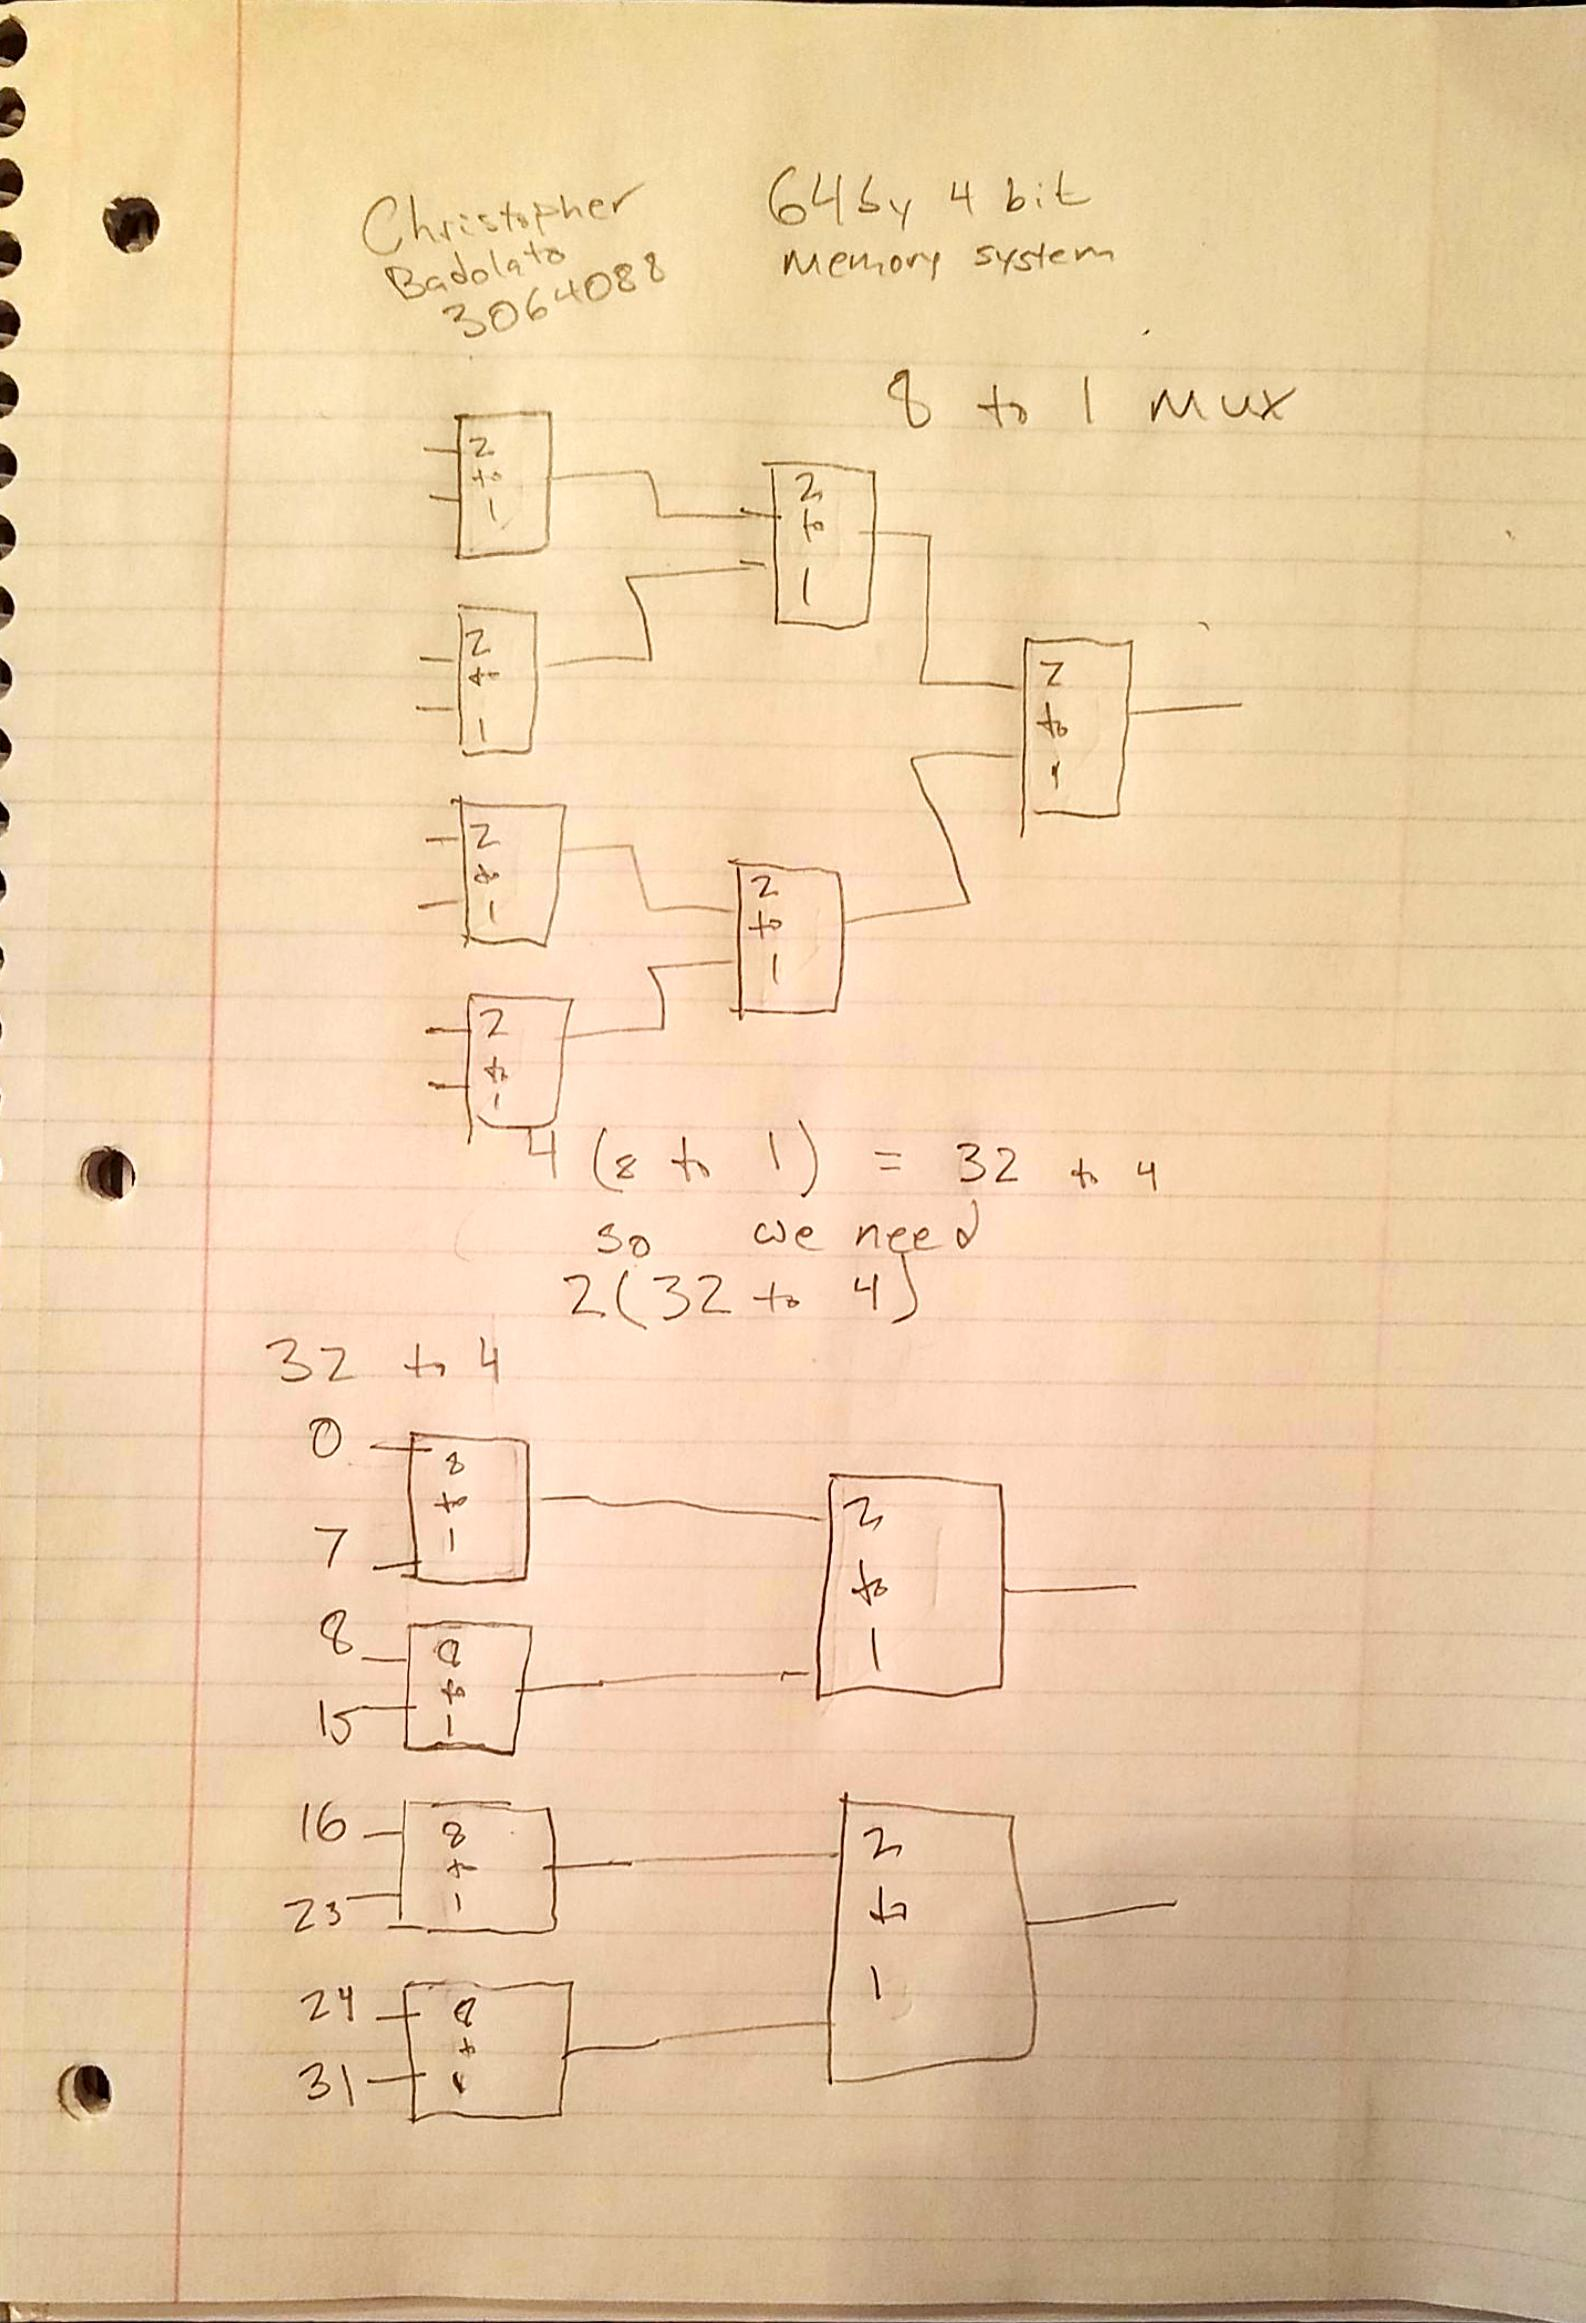 Christopher
Badolato
3064088
64 by 4 bit
memory system
8 to 1 mux
2
to
1
2
to
1
2
to
1
2
to
1
2
to
1
2
to
1
2
to
1
4 (8 to 1) = 32 to 4
so we need
2(32 to 4)
32 to 4
0
7
8
to
1
8
15
8
to
1
2
to
1
16
23
8
to
1
24
31
8
to
1
2
to
1